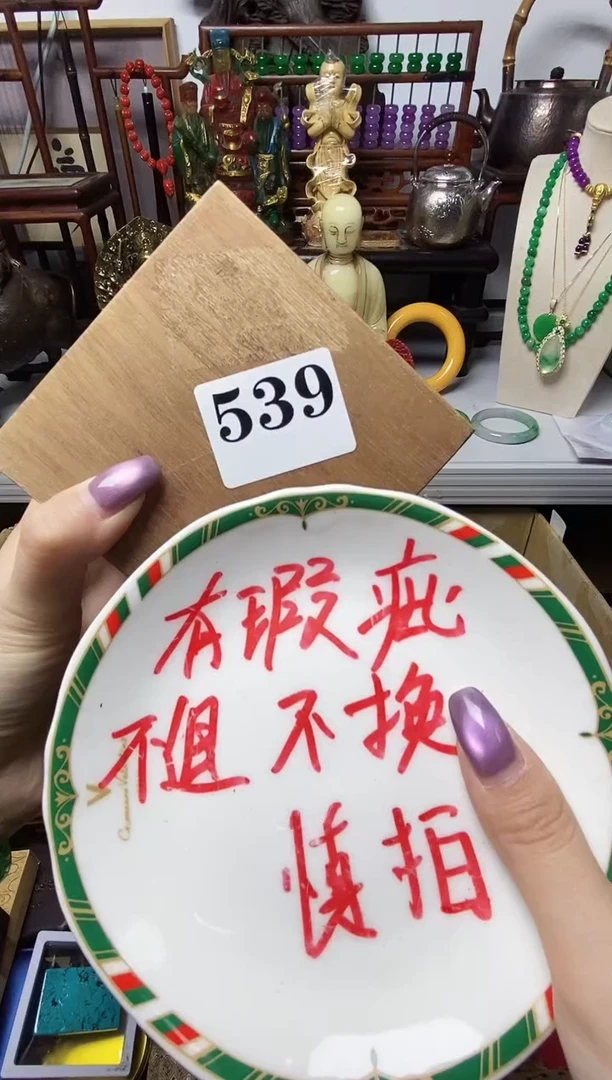 539
有瑕疵
不退 不换
慎拍